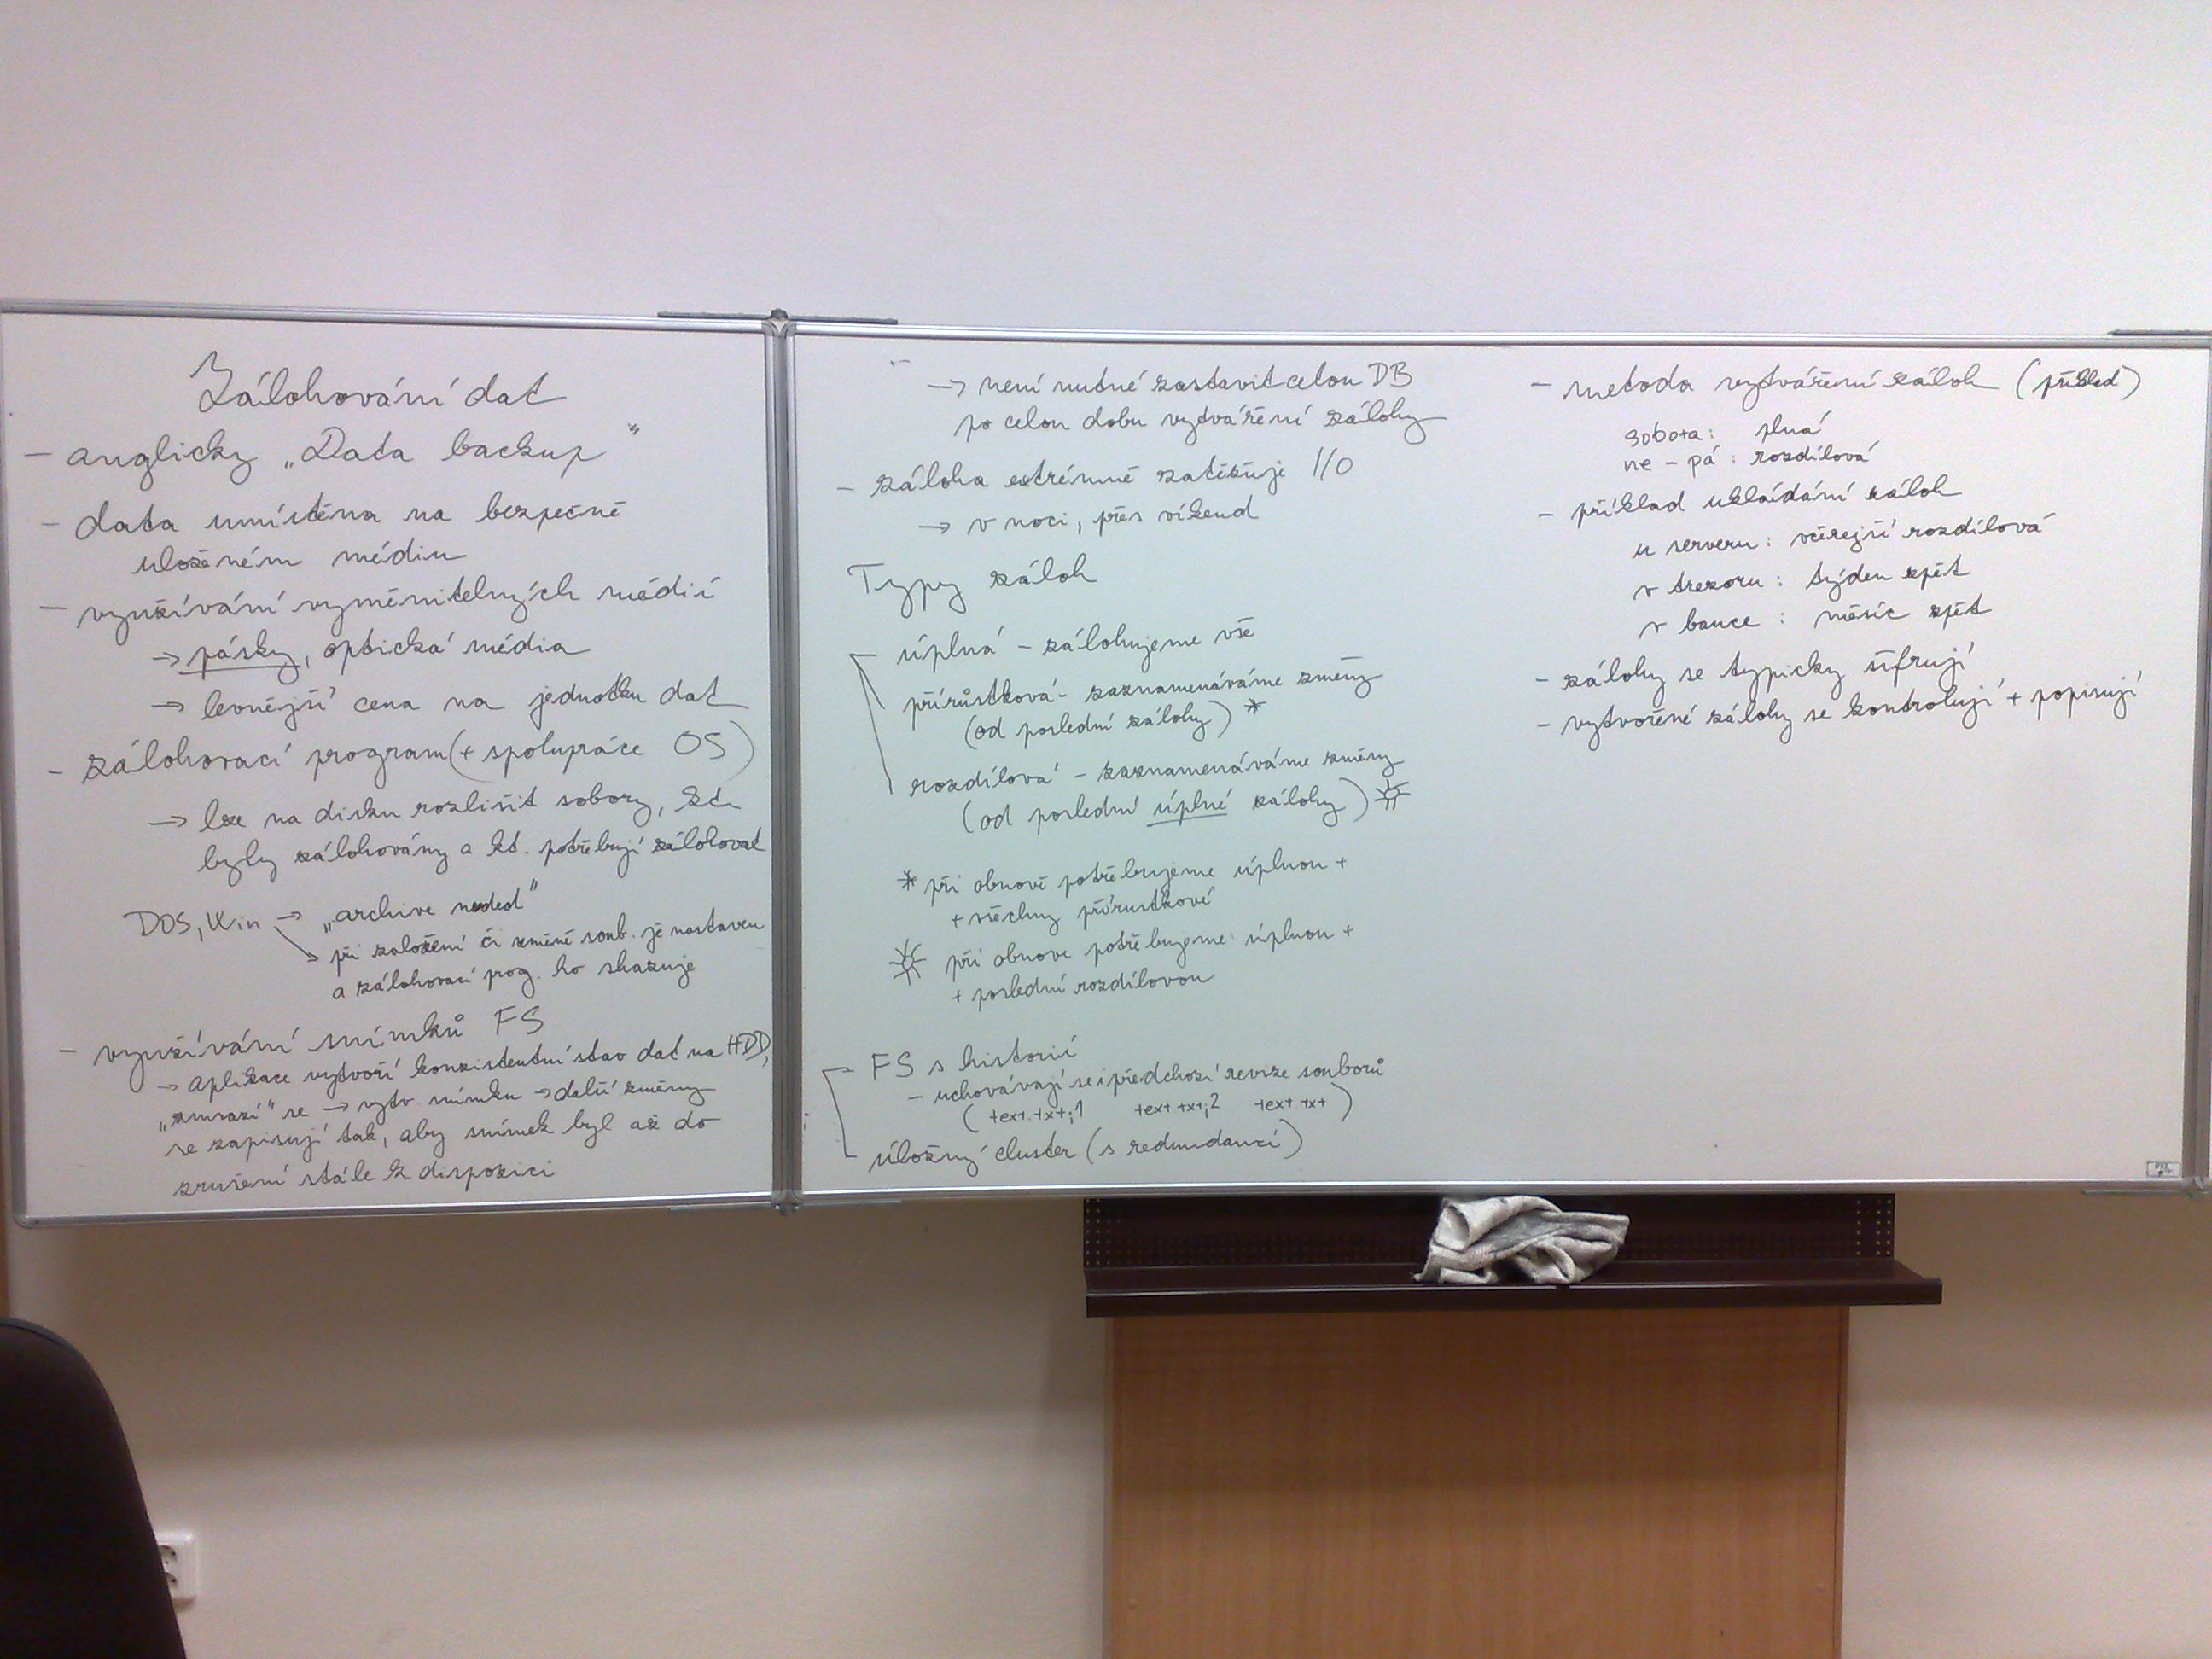 Zálohování dat
- anglicky „Data backup"
- data umístěna na bezpečně
uloženém médiu
- využívání vyměnitelných médií
→ pásky, optická média
→ levnější cena na jednotku dat
- zálohovací program (+ spolupráce OS)
→ lze na disku rozlišit sobory, kt.
byly zálohovány a kt. potřebují zálohovat
DOS, Win → „archive needed"
→ při založení či změně soub. je nastaven
a zálohovací prog. ho shazuje
- využívání snímků FS
→ aplikace vytvoří konzistentní stav dat na HDD,
„zmrazí" se → vytv. snímku → další změny
se zapisují tak, aby snímek byl až do
zrušení stále k dispozici
→ není nutné zastavit celou DB
po celou dobu vytváření zálohy
- záloha extrémně zatěžuje I/O
→ v noci, přes víkend
Typy záloh
- úplná - zálohujeme vše
přírůstková - zaznamenáváme změny
(od poslední zálohy) *
rozdílová - zaznamenáváme změny
(od poslední úplné zálohy) ☼
* při obnově potřebujeme úplnou +
+ všechny přírustkové
☼ při obnove potřebujeme úplnou +
+ poslední rozdílovou
- FS s historií
- uchovávají se i předchozí revize souborů
(text.txt;1 text txt;2 text txt)
- úložný cluster (s redundancí)
- metoda vytváření záloh (příklad)
sobota: plná
ne - pá: rozdílová
- příklad ukládání záloh
u serveru: včerejší rozdílová
v trezoru: týden zpět
v bance: měsíc zpět
- zálohy se typicky šifrují
- vytvořené zálohy se kontrolují + popisují